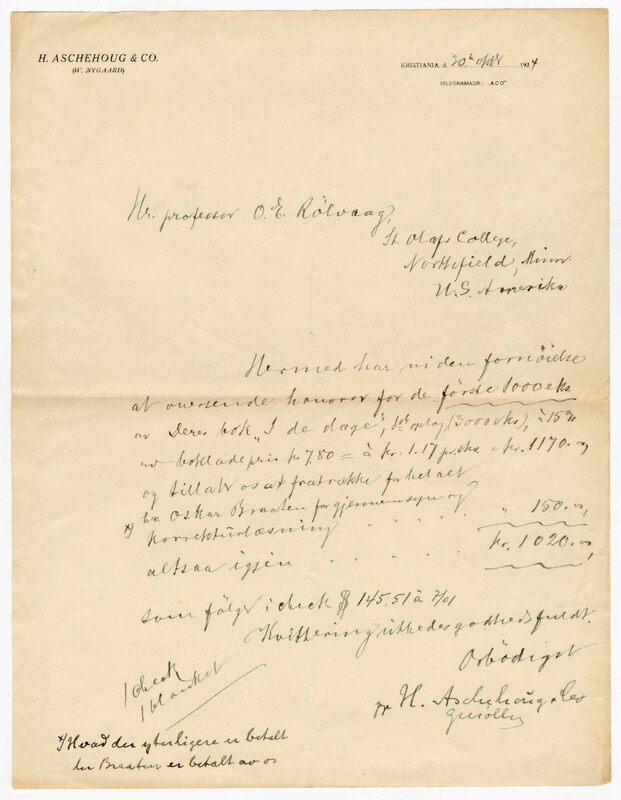 H. ASCHEHOUG & CO.
(W. NYGAARD)
KRISTIANIA, d. 30te 1924
TELEGRAMADR.: „ACO"
Hr. professor O. E. Rölvaag,
St. Olafs College,
Northfield, Minn.
U.S. Amerika
Hermed har vi den fornöielse
at oversende honorar for de förste 1000 eks
av Deres bok „I de dage", 1ste oplag (3000 eks), à 15%
av bokladepris kr 7.80 = à kr. 1.17 pr. eks. = kr. 1170.
og tillatt os at fratrække for betalt
x) hr. Oskar Braaten for gjennemsyn og
Korrekturlæsning . . . . " 150.
altsaa igjen . . . . kr. 1020.
som fölger i check $ 145.51 à 7/01
Kvittering utbedes godhedsfuldt.
Örbödigst
pr H. Aschehoug & Co
1 check
1 blanket
x) Hvad der yterligere er betalt
hr Braaten er betalt av os